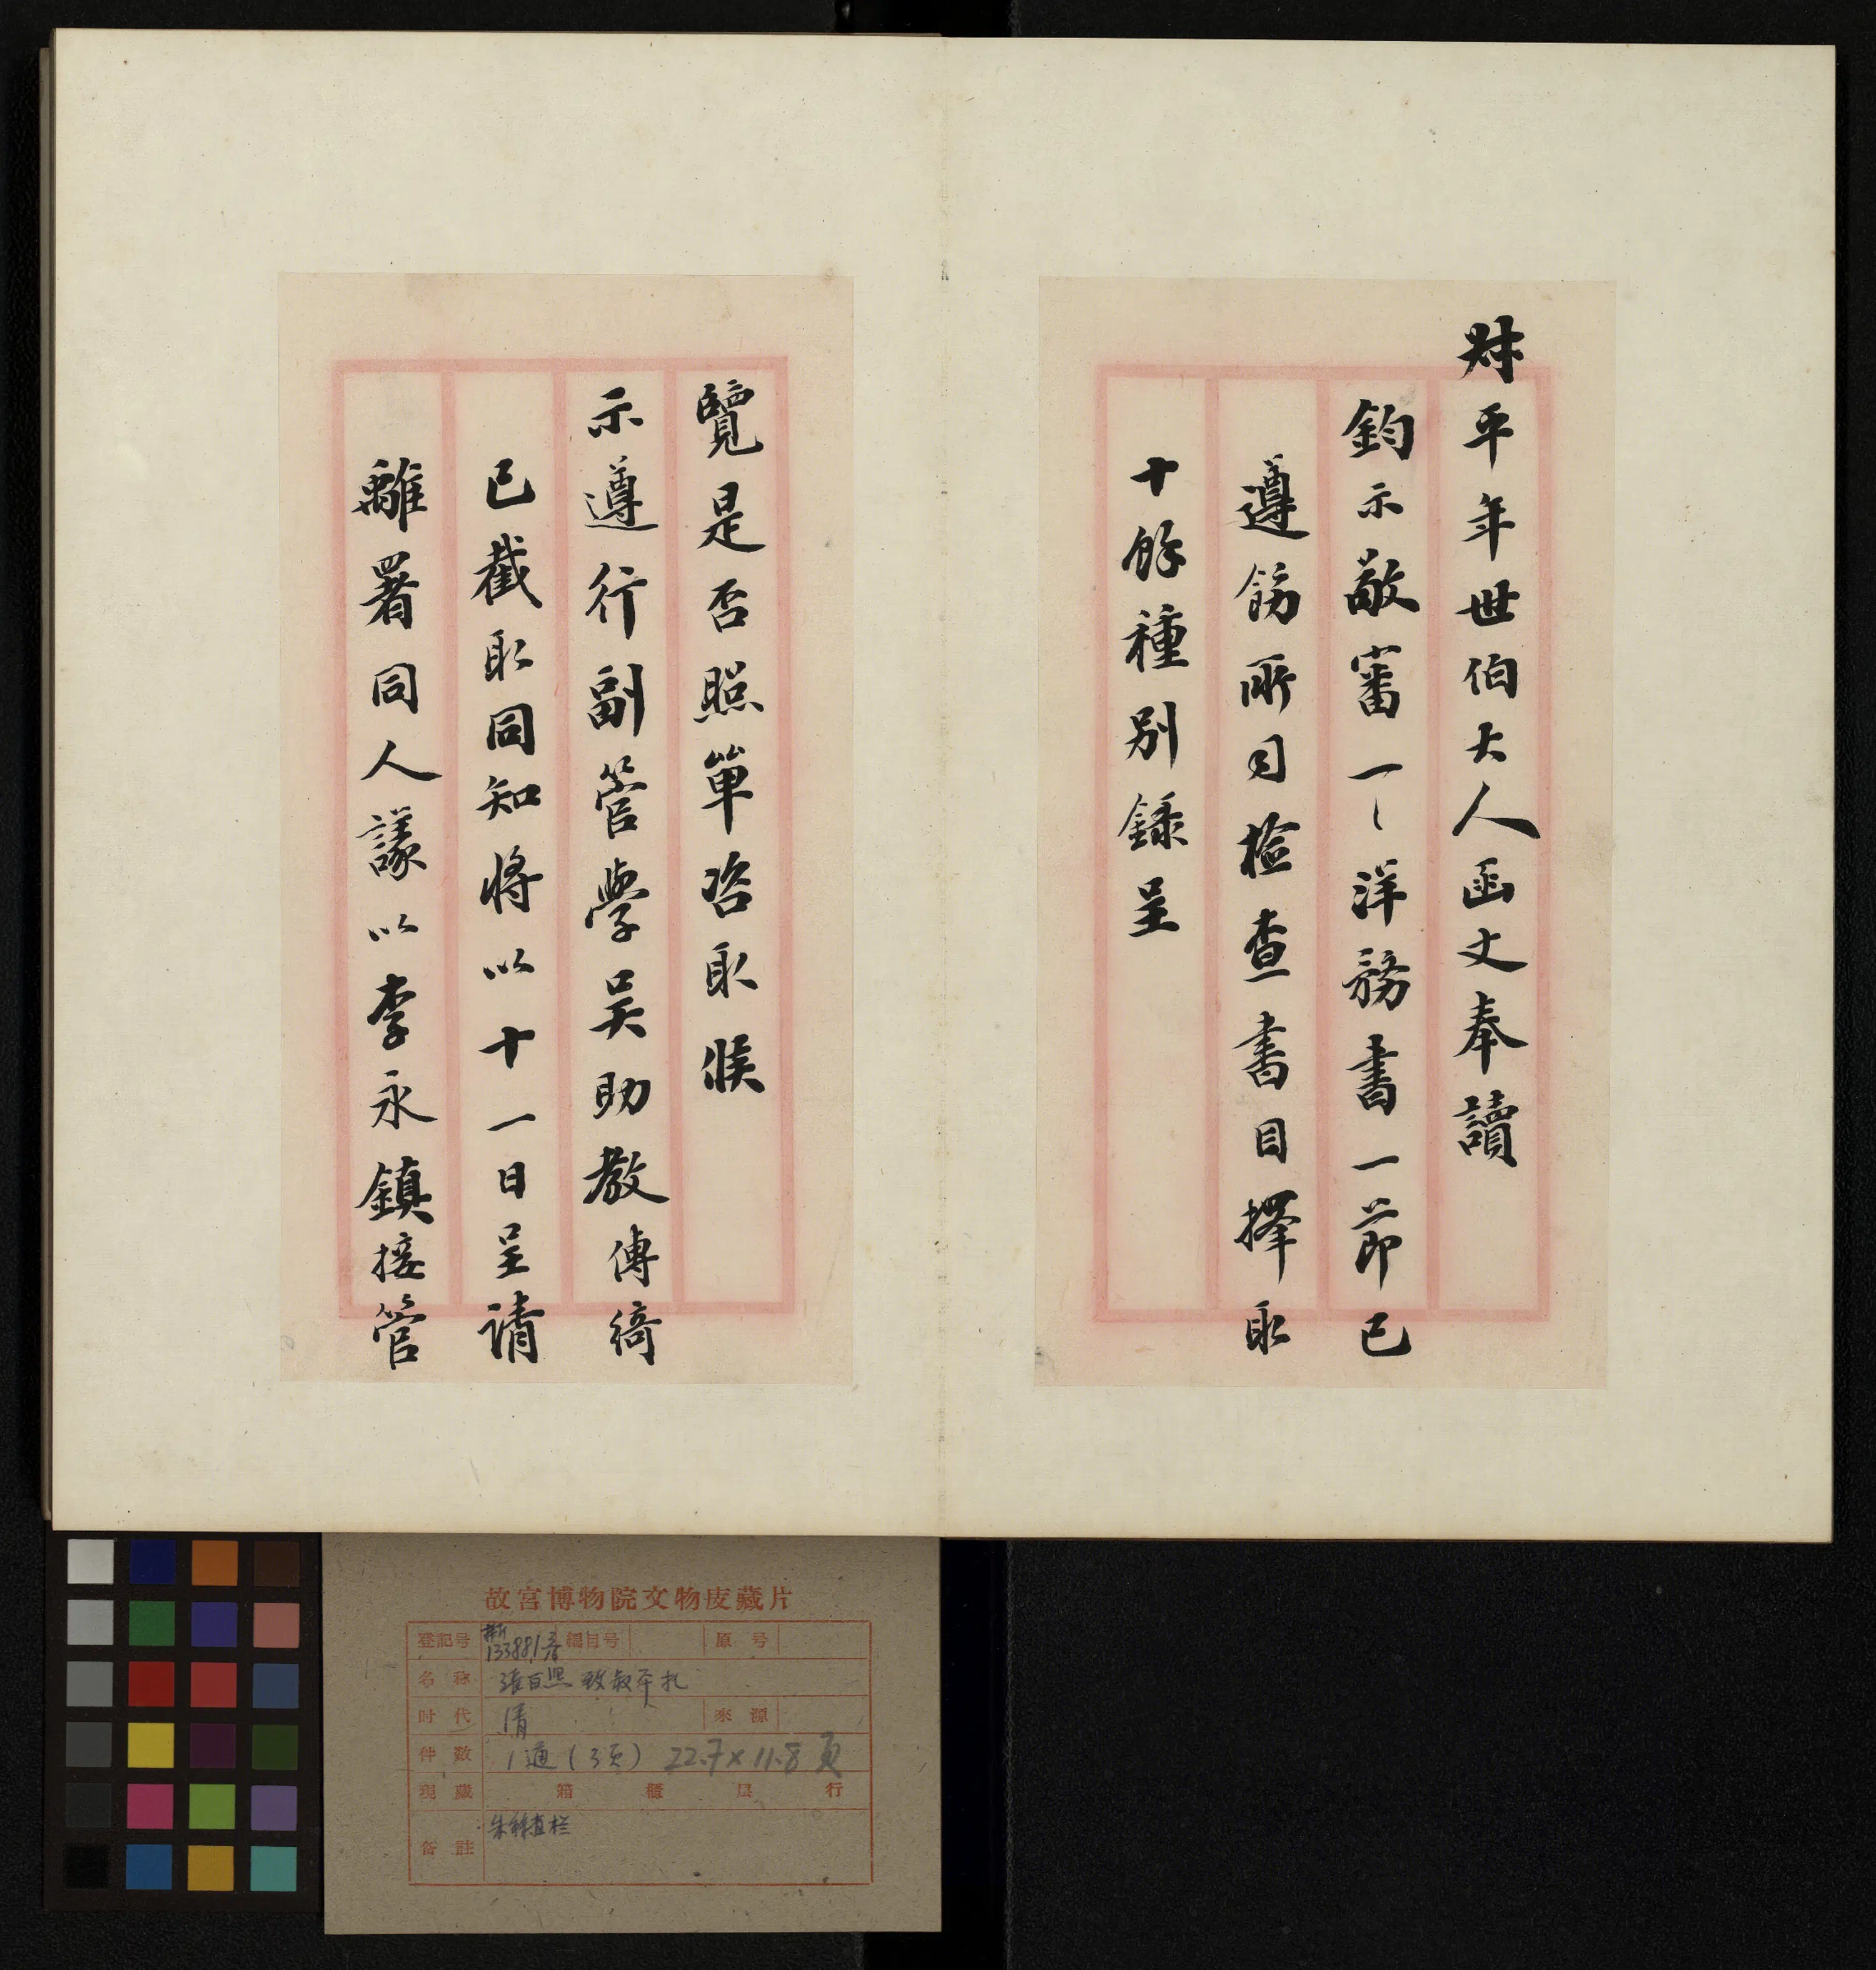 尗平年世伯大人函丈奉讀
鈞示敬審一一洋務書一節已
遵飭所司檢查書目擇取
十餘種別錄呈
覽是否照單咨取候
示遵行副管學吳助教傳綺
已截取同知將以十一日呈請
離署同人議以李永鎮接管
故宮博物院文物庋藏片
登記号 新133881 3/8 編目号 原号
名称 張百熙致叔平札
时代 清 來源
件数 1通(3页) 22.7×11.8 頁
現藏 箱 櫃 层 行
备註 朱絲直栏